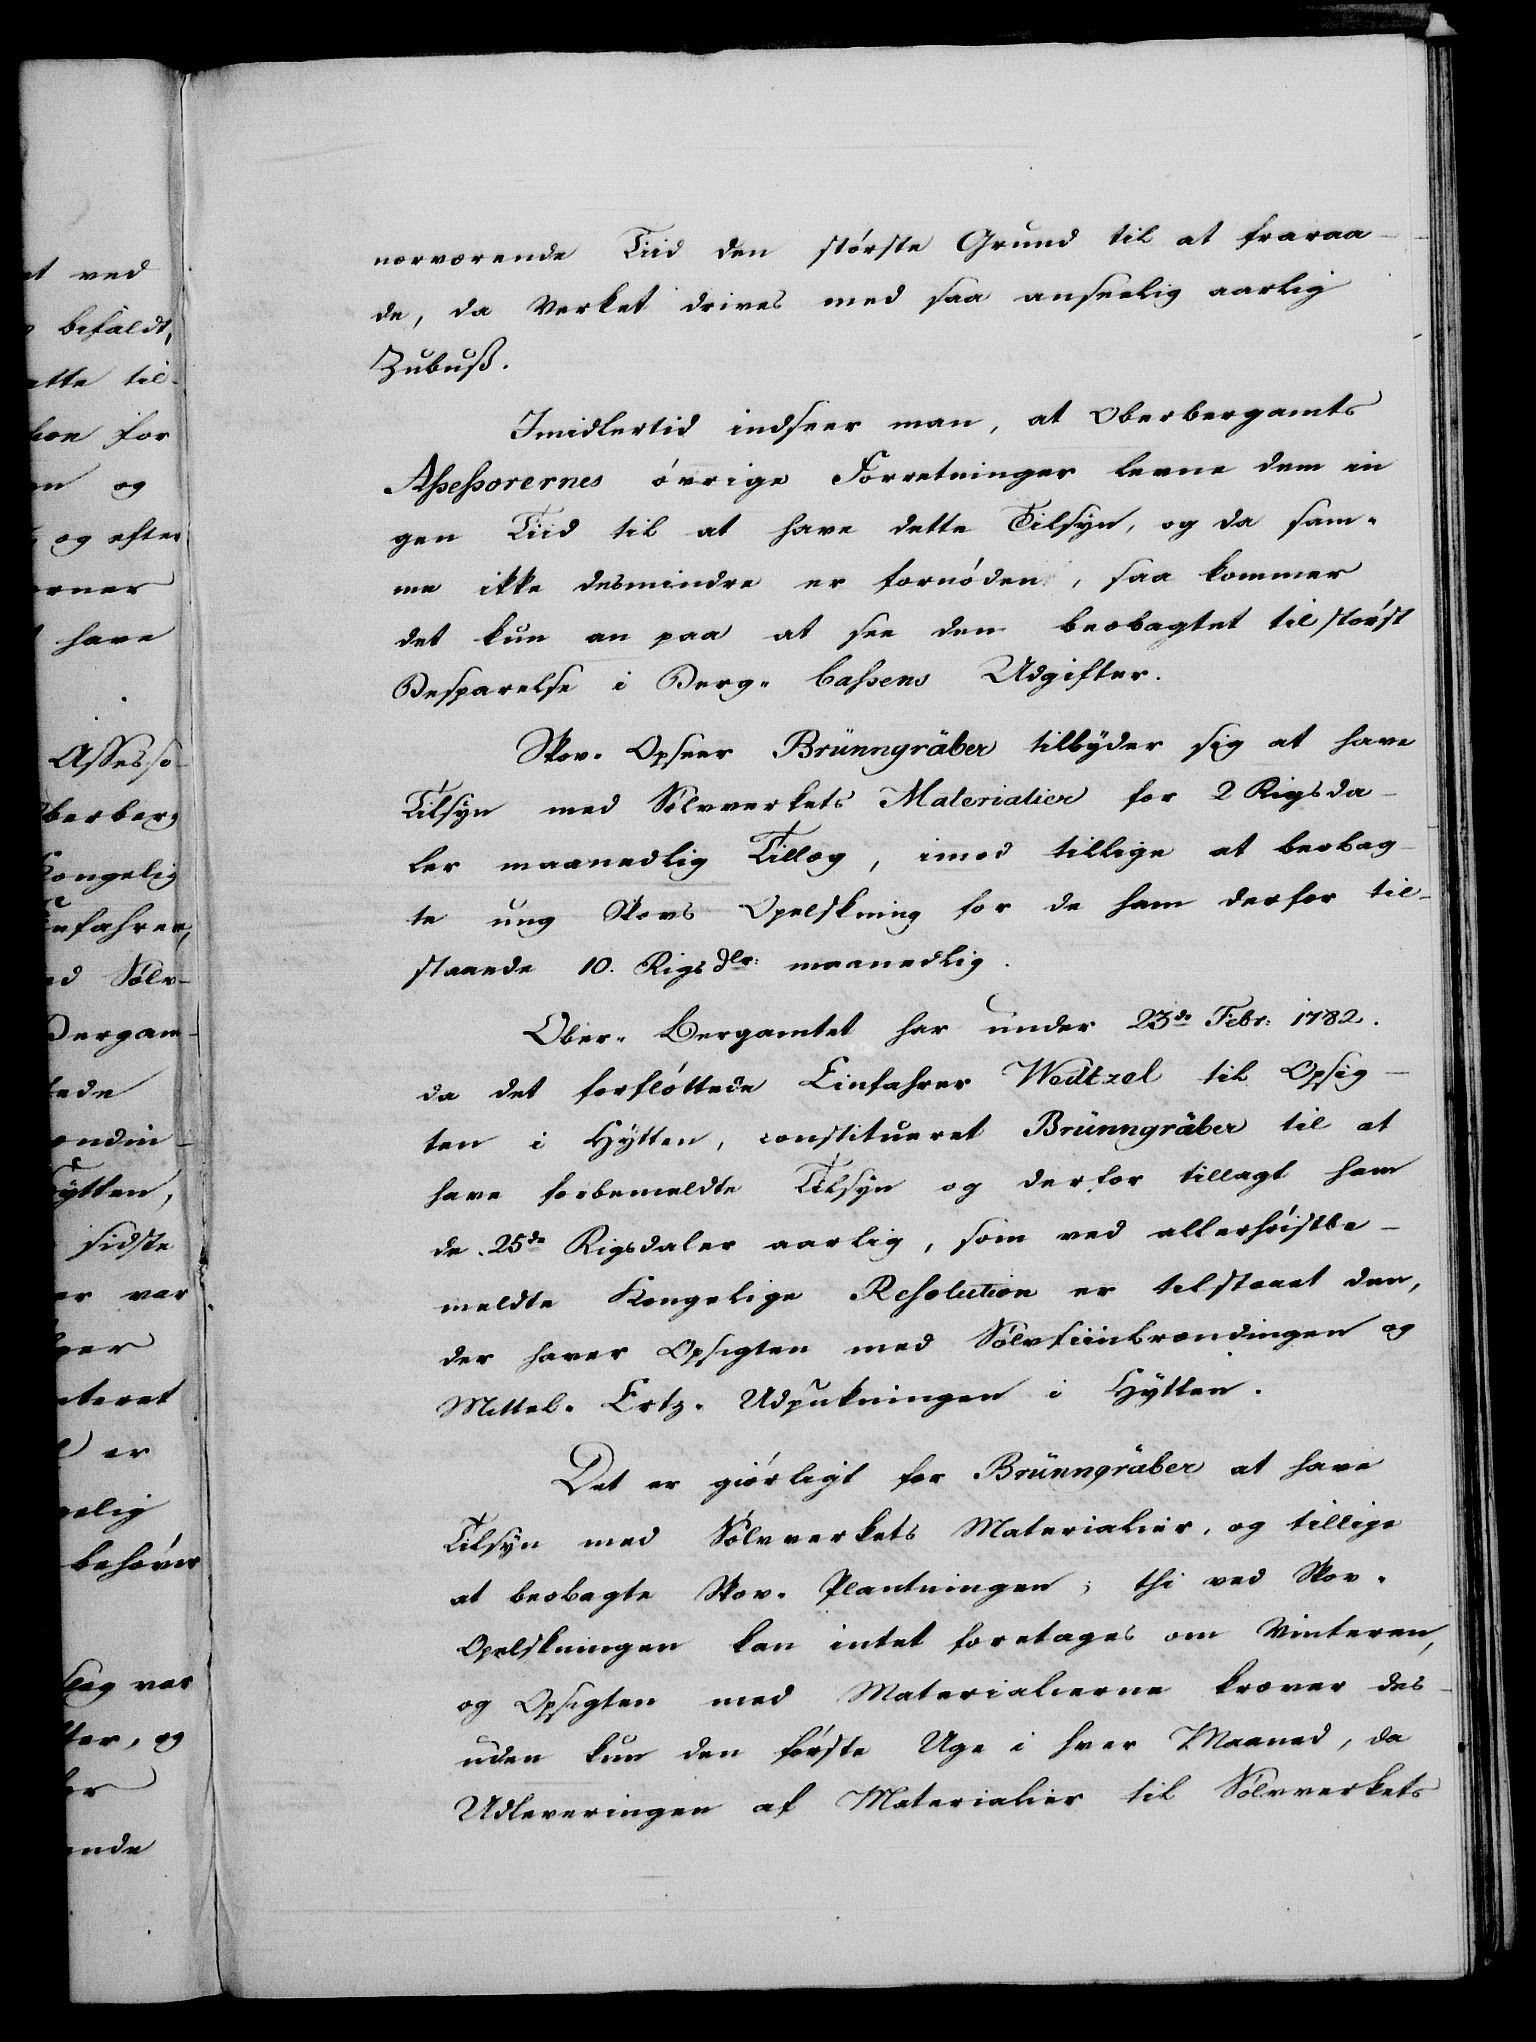 nærværende Tiid den störste Grund til at fraraa-
de, da Verket drives med saa anseelig aarlig
Zubuß.
Imidlertid indseer man, at Oberbergamts
Aſseſsorernes övrige Forretninger levne dem in
gen Tiid til at have dette Tilsÿn, og da sam-
me ikke desmindre er fornöden, saa kommer
det kun an paa at see den beobagtet til störst
Besparelse i Berg- Caſsens Udgifter.
Skov- Opseer Brünngräber tilbÿder sig at have
Tilsÿn med Sölvverkets Materialier for 2 Rigsda-
ler maanedlig Tillæg, imod tillige at beobag-
te ung Skovs Opelskning for de ham derfor til-
staaede 10. Rigsdlr: maanedlig.
Ober- Bergamtet har under 23de Febr: 1782.
da det forflöttede Einfahrer Wedtzel til Opsig-
ten i Hÿtten, constitueret Brünngräber til at
have forbemeldte Tilsÿn og derfor tillagt ham
de 25de Rigsdaler aarlig, som ved allerhöistbe-
meldte Kongelige Reſolution er tilstaaet den,
der haver Opsigten med Sölvfiinbrændingen og
Mittel- Ertz- Udpukningen i Hÿtten.
Det er giörligt for Brünngräber at have
Tilsÿn med Sölvverkets Materialier, og tillige
at beobagte Skov- Plantningen; thi ved Skov-
Opelskningen kan intet foretages om Vinteren,
og Opsigten med Materialierne kræver des-
uden kun den förste Uge i hver Maaned, da
Udleveringen af Materialier til Sölvverkets